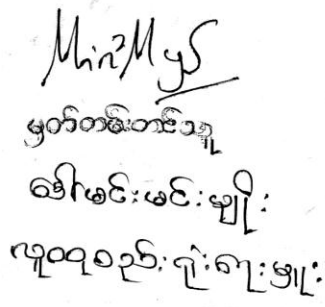 Min²Myo
မှတ်တမ်းတင်သူ
ဒေါ်မင်းမင်းမျိုး
လူထုစည်းရုံးရေးမှူး